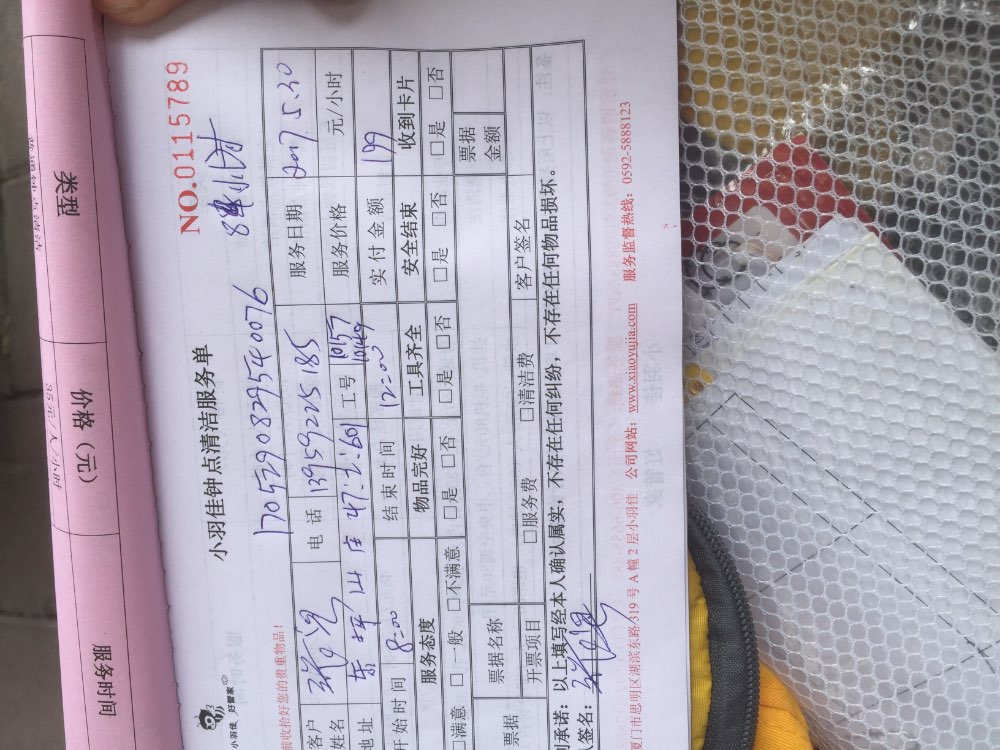 类型
价格（元）
35元/人/小时
服务时间
NO.0115789
小羽佳 好管家
小羽佳钟点清洁服务单
8小时
前收拾好您的贵重物品！
1705290829540076
客户
姓名
电话
13959225185
服务日期
2017.5.30
地址
东坪山庄47
601
工号
10157
服务价格
元/小时
开始时间
8:00
结束时间
12:00
实付金额
199
服务态度
物品完好
工具齐全
安全结束
收到卡片
□满意 □一般 □不满意
□是 □否
□是 □否
□是 □否
□是 □否
票据
票据名称
票据
金额
开票项目
□服务费 □清洁费
客户签名
承诺：以上填写经本人确认属实，不存在任何纠纷，不存在任何物品损坏。
人签名：
厦门市思明区湖滨东路319号A幢2层小羽佳 公司网站：www.xiaoyujia.com 服务监督热线：0592-5888123